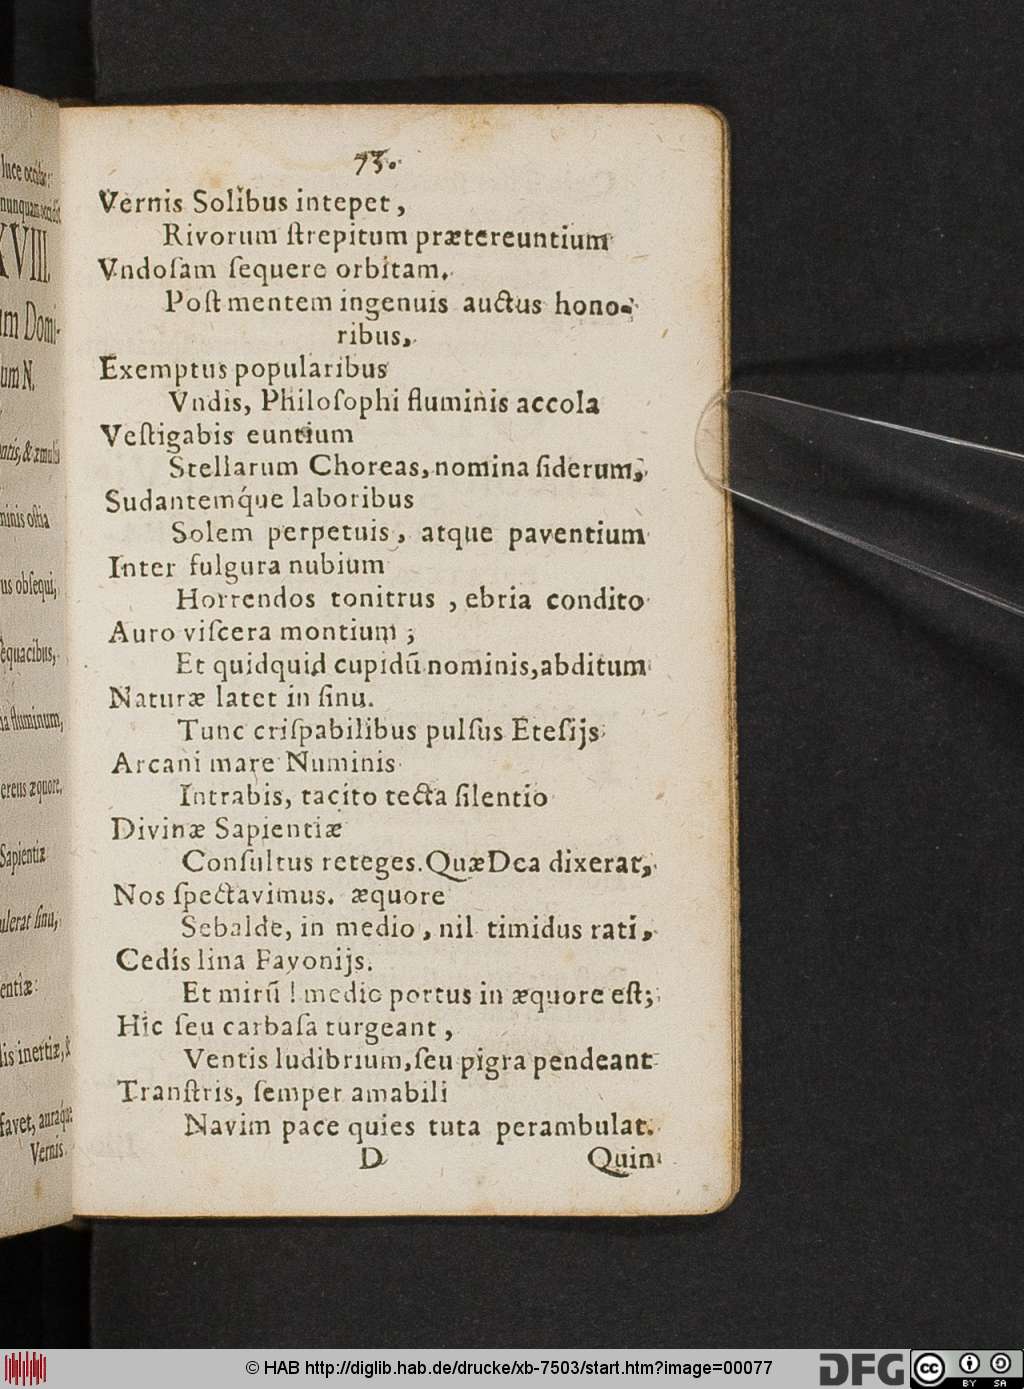 luce occidit:
nunquam
XVIII.
um Domi-
um N.
natis, & æmulis
minis ostia
us obsequi,
sequacibus,
na fluminum,
ereus æquore,
Sapientiæ
ulerat sinu,
entiæ:
lis inertiæ, &
favet, auraque
Vernis
73.
Vernis Solibus intepet,
Rivorum ſtrepitum prætereuntium
Vndoſam ſequere orbitam.
Poſt mentem ingenuis auctus hono-
ribus,
Exemptus popularibus
Vndis, Philoſophi fluminis accola
Veſtigabis euntium
Stellarum Choreas, nomina ſiderum,
Sudantemq́ue laboribus
Solem perpetuis, atque paventium
Inter fulgura nubium
Horrendos tonitrus, ebria condito
Auro viſcera montium;
Et quidquid cupidū nominis, abditum
Naturæ latet in ſinu.
Tunc criſpabilibus pulſus Eteſijs
Arcani mare Numinis
Intrabis, tacito tecta ſilentio
Divinæ Sapientiæ
Conſultus reteges. Quæ Dea dixerat,
Nos ſpectavimus. æquore
Sebalde, in medio, nil timidus rati,
Cedis lina Favonijs.
Et mirū! medio portus in æquore eſt;
Hic ſeu carbaſa turgeant,
Ventis ludibrium, ſeu pigra pendeant
Tranſtris, ſemper amabili
Navim pace quies tuta perambulat.
D Quin
© HAB http://diglib.hab.de/drucke/xb-7503/start.htm?image=00077
DFG
cc BY SA